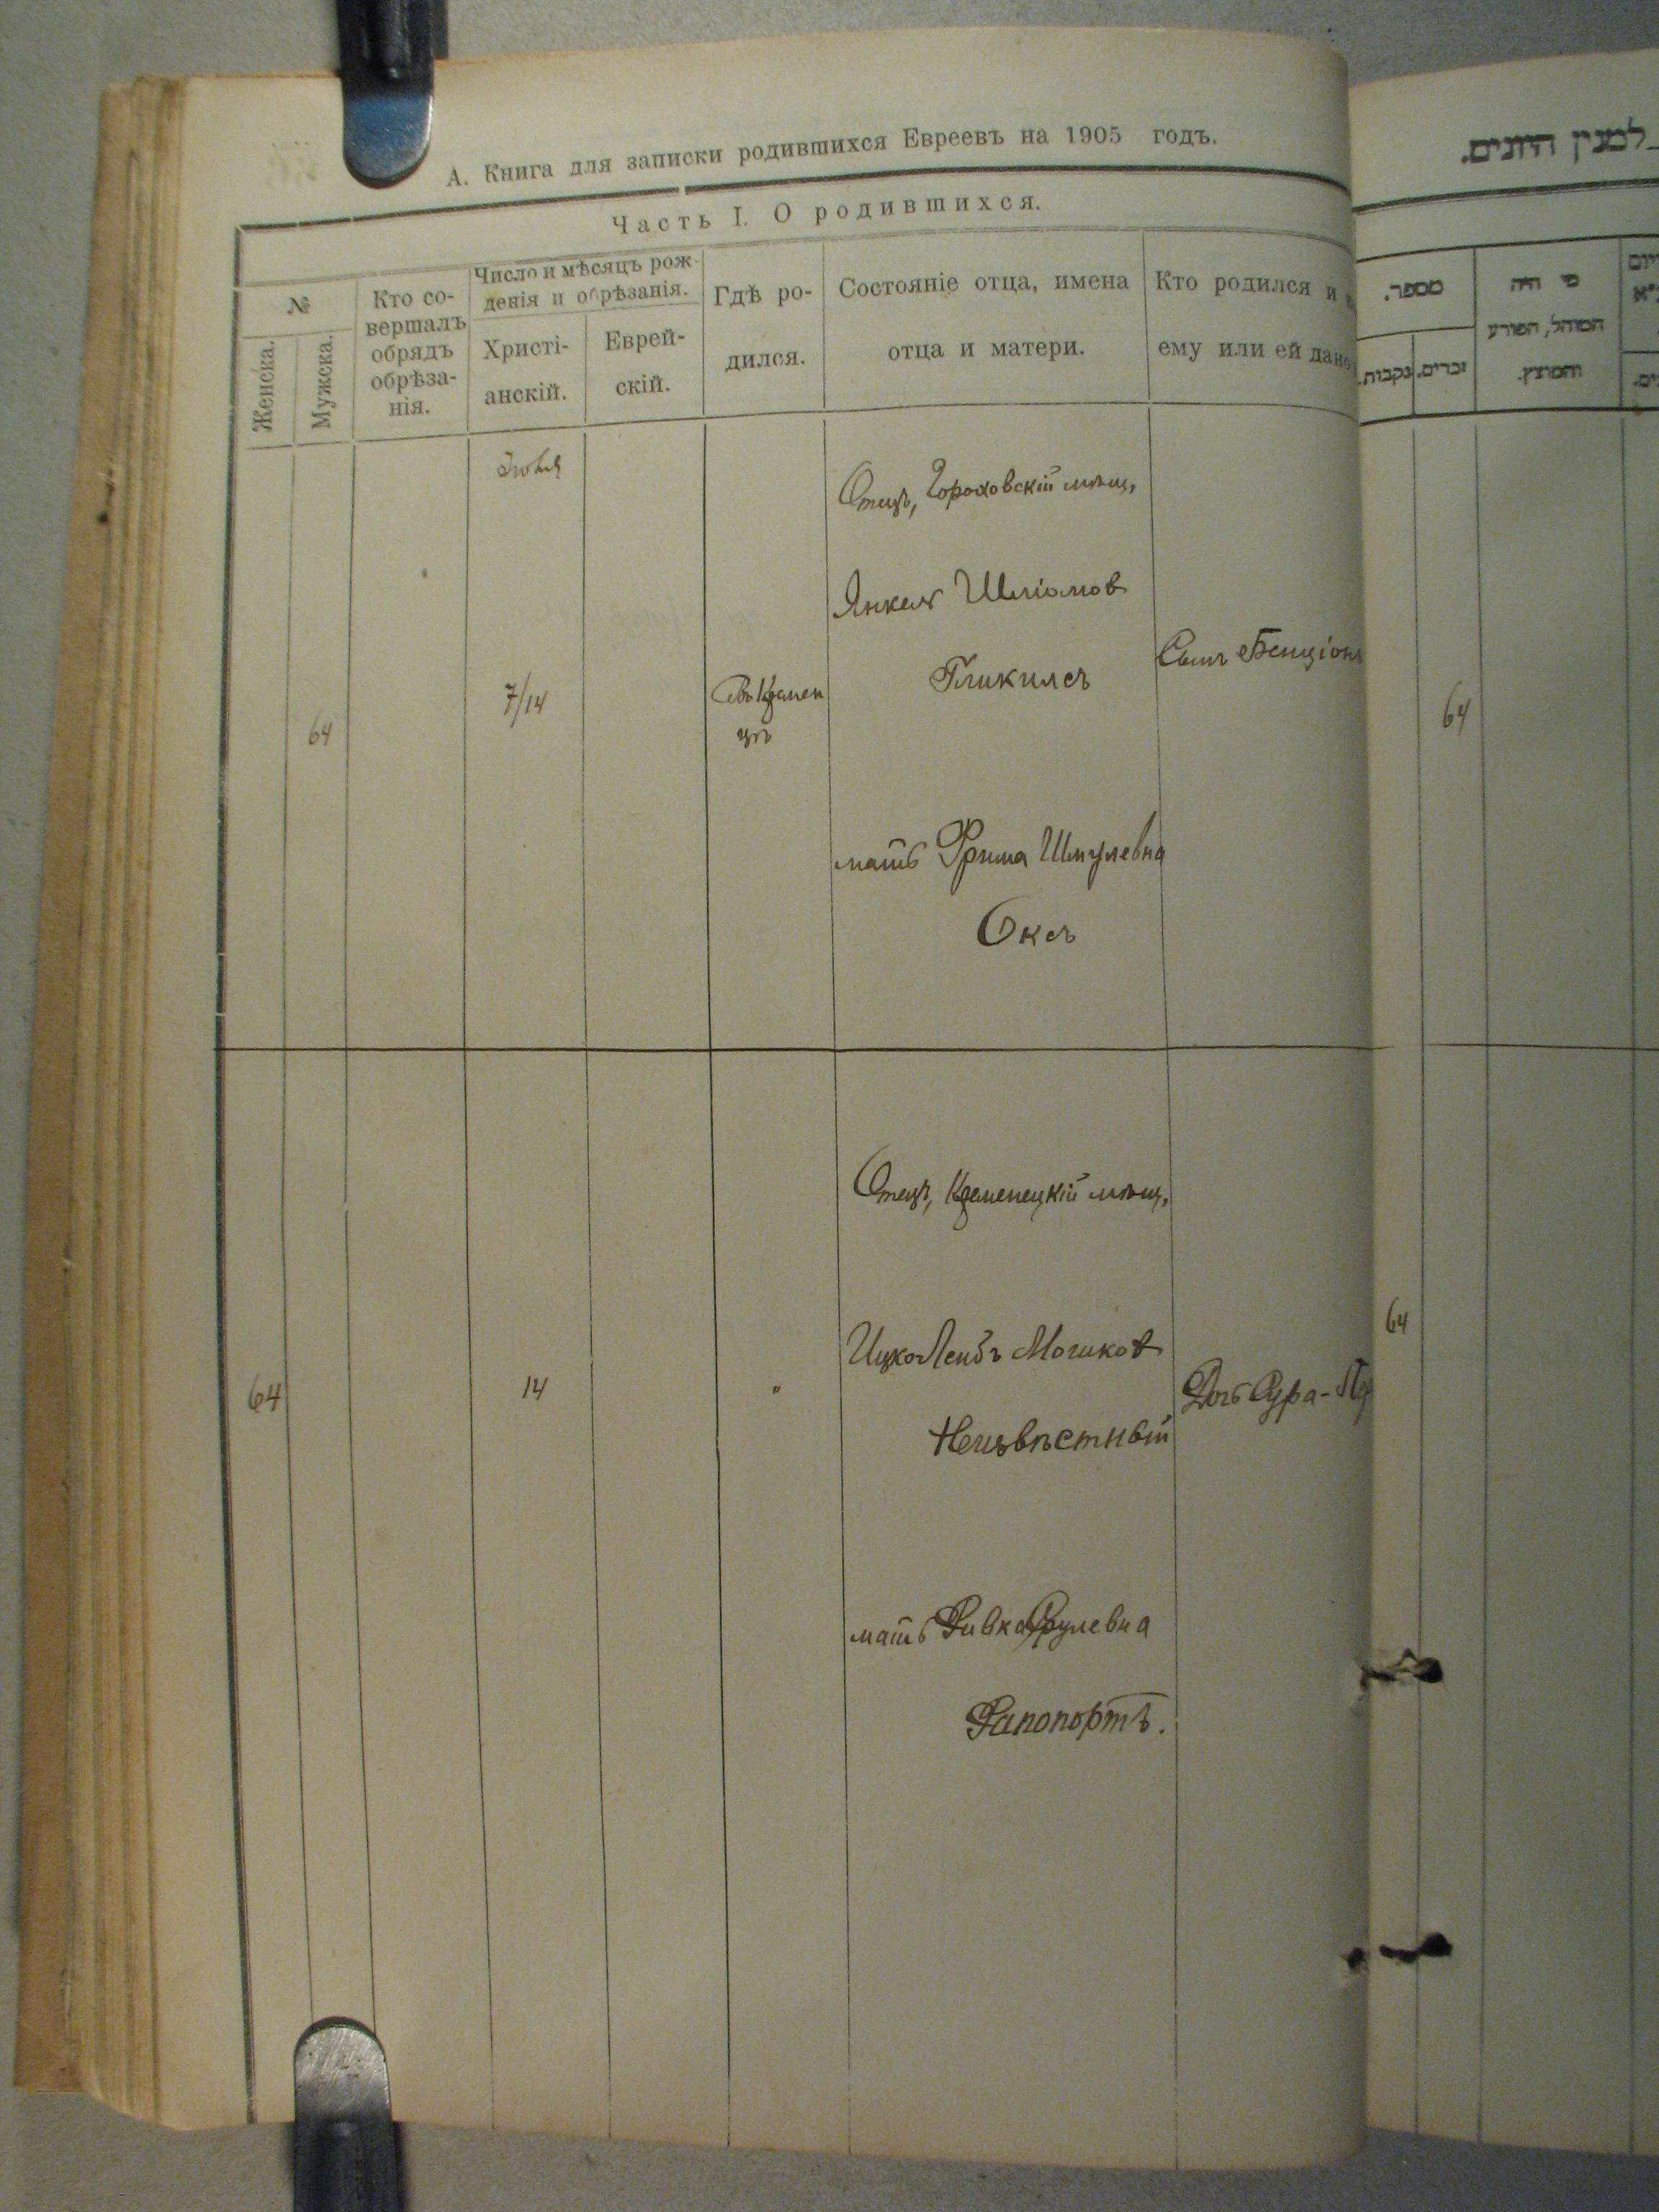 А. Книга для записки родившихся Евреевъ на 1905 годъ.
Часть I. О родившихся.
№
Женска.
Мужска.
Кто со-
вершалъ
обрядъ
обрѣза-
нія.
Число и мѣсяцъ рож-
денія и обрѣзанія.
Христі-
анскій.
Еврей-
скій.
Гдѣ ро-
дился.
Состояніе отца, имена
отца и матери.
Кто родился и
ему или ей дано
64
7/14
Въ Кремен
цѣ
Отецъ, Гороховскій мѣщ,
Янкель Шліомов
Гликилсъ
мать Фрима Шмулевна
Оксъ
Сынъ Бенціонъ
64
14
"
Отецъ, Кременецкій мѣщ,
Ицко Лейбъ Мошков
Неизвѣстный
мать Ривка Срулевна
Рапопортъ.
Дочь Сура-
למנין היונים.
מספר.
נקבות.
זכרים.
מי היה
המוהל, הפורע
והמוצץ.
64
64